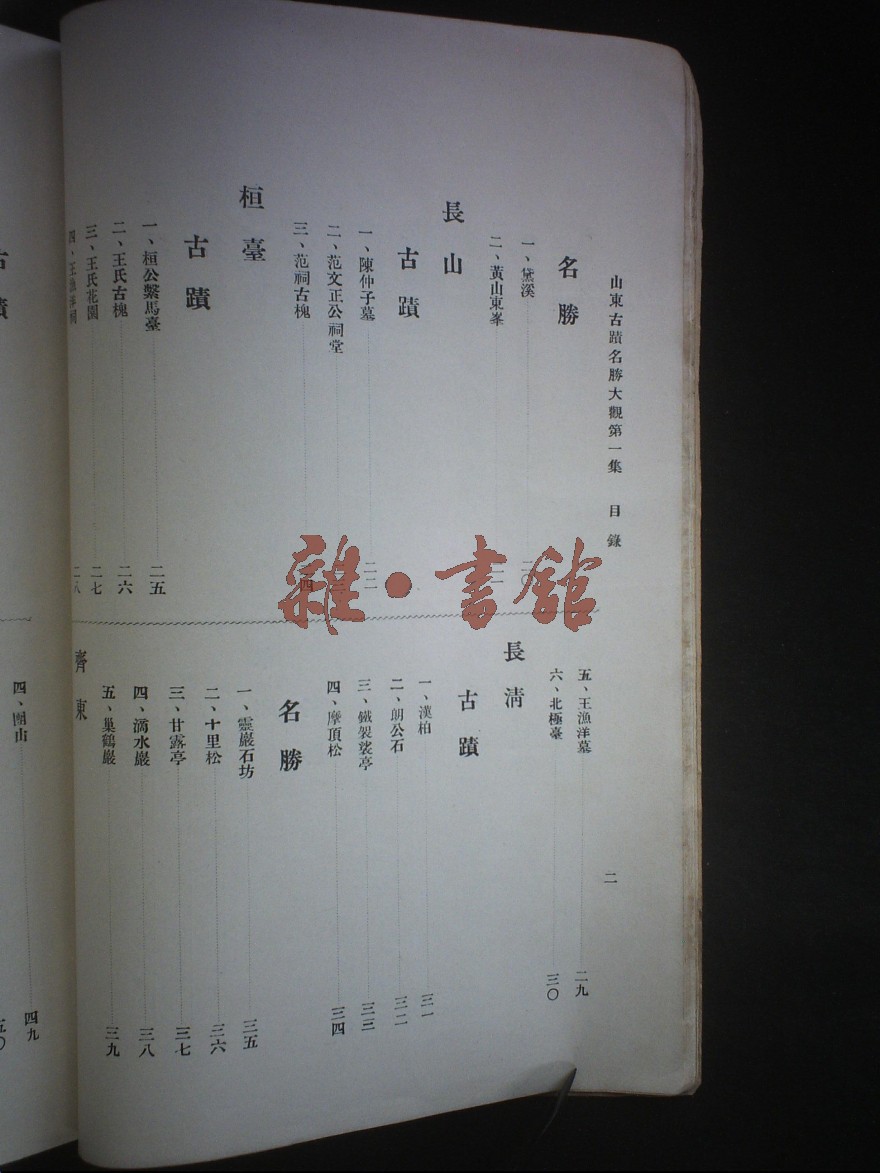 山東古蹟名勝大觀第一集　目錄
二
名勝
一、黛溪
二、黃山東峯
長山
古蹟
一、陳仲子墓 二二
二、范文正公祠堂
三、范祠古槐
桓臺
古蹟
一、桓公繫馬臺 二五
二、王氏古槐 二六
三、王氏花園 二七
四、王漁洋祠 二八
五、王漁洋墓 二九
六、北極臺 三〇
長清
古蹟
一、漢柏 三一
二、朗公石 三二
三、鐵袈裟亭 三三
四、摩頂松 三四
名勝
一、靈巖石坊 三五
二、十里松 三六
三、甘露亭 三七
四、滴水巖 三八
五、巢鶴巖 三九
齊東
古蹟
四、團山 四九
五〇
雜·書館